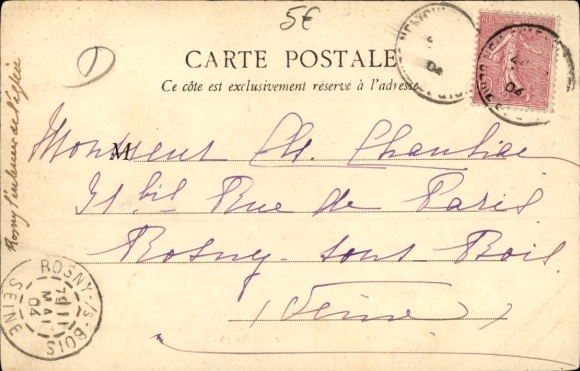 5€
CARTE POSTALE
Ce côté est exclusivement réservé à l'adresse
M
Monsieur Ch.
bis Rue de Paris
Rosny-sous-Bois
(Seine)
Rosny l'intérieur de l'église
ROSNY-/S-BOIS
MAI
04
SEINE
04
04